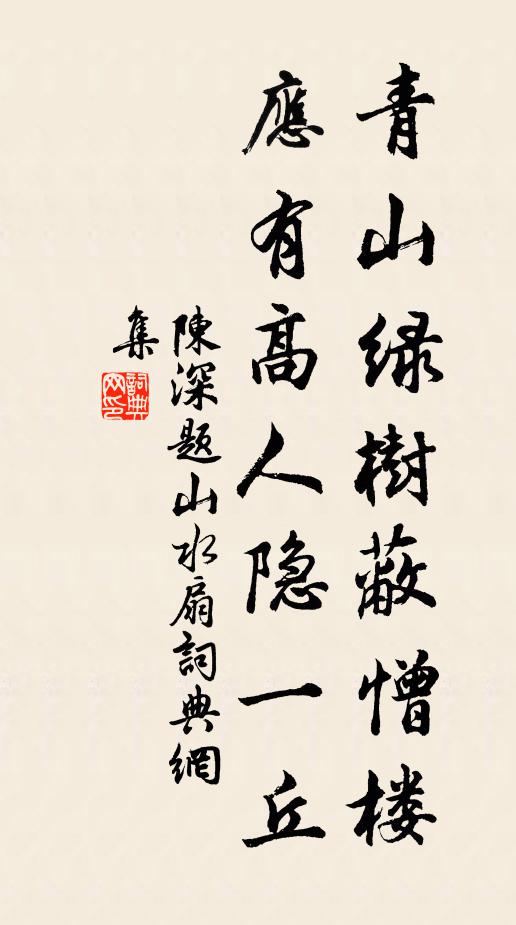 青山绿樹蔽憎楼
應有高人隐一丘
陳深題山水扇詞典網
集
詞典
网印